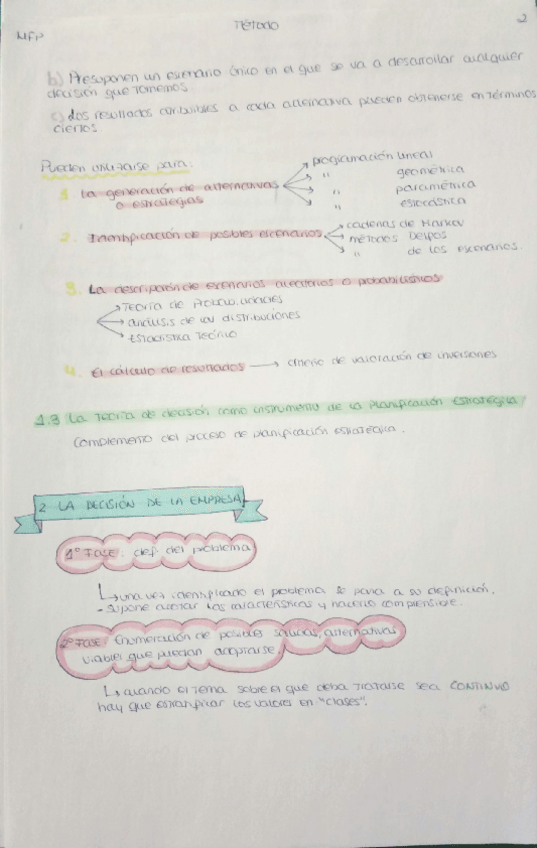 MFP
Método
2
b) Presuponen un escenario único en el que se va a desarrollar cualquier
decisión que tomemos.
c) Los resultados atribuibles a cada alternativa pueden obtenerse en términos
ciertos
Pueden utilizarse para:
1. La generación de alternativas
o estrategias
programación lineal
" geométrica
" paramétrica
" estocástica
2. Identificación de posibles escenarios
cadenas de Markov
métodos Delfos
" de los escenarios.
3. La descripción de escenarios aleatorios o probabilísticos
Teoría de Probabilidades
análisis de las distribuciones
estadística teórica
4. El cálculo de resultados → criterio de valoración de inversiones
1.3 La Teoría de decisión como instrumento de la planificación estratégica
Complemento del proceso de planificación estratégica.
2 LA DECISIÓN DE LA EMPRESA
1º FASE: def. del problema
una vez identificado el problema se pasa a su definición.
- supone acotar las características y hacerlo comprensible.
2º FASE: Enumeración de posibles salidas, alternativas
viables que puedan adoptarse.
cuando el tema sobre el que deba tratarse sea CONTINUO
hay que estratificar los valores en "clases".